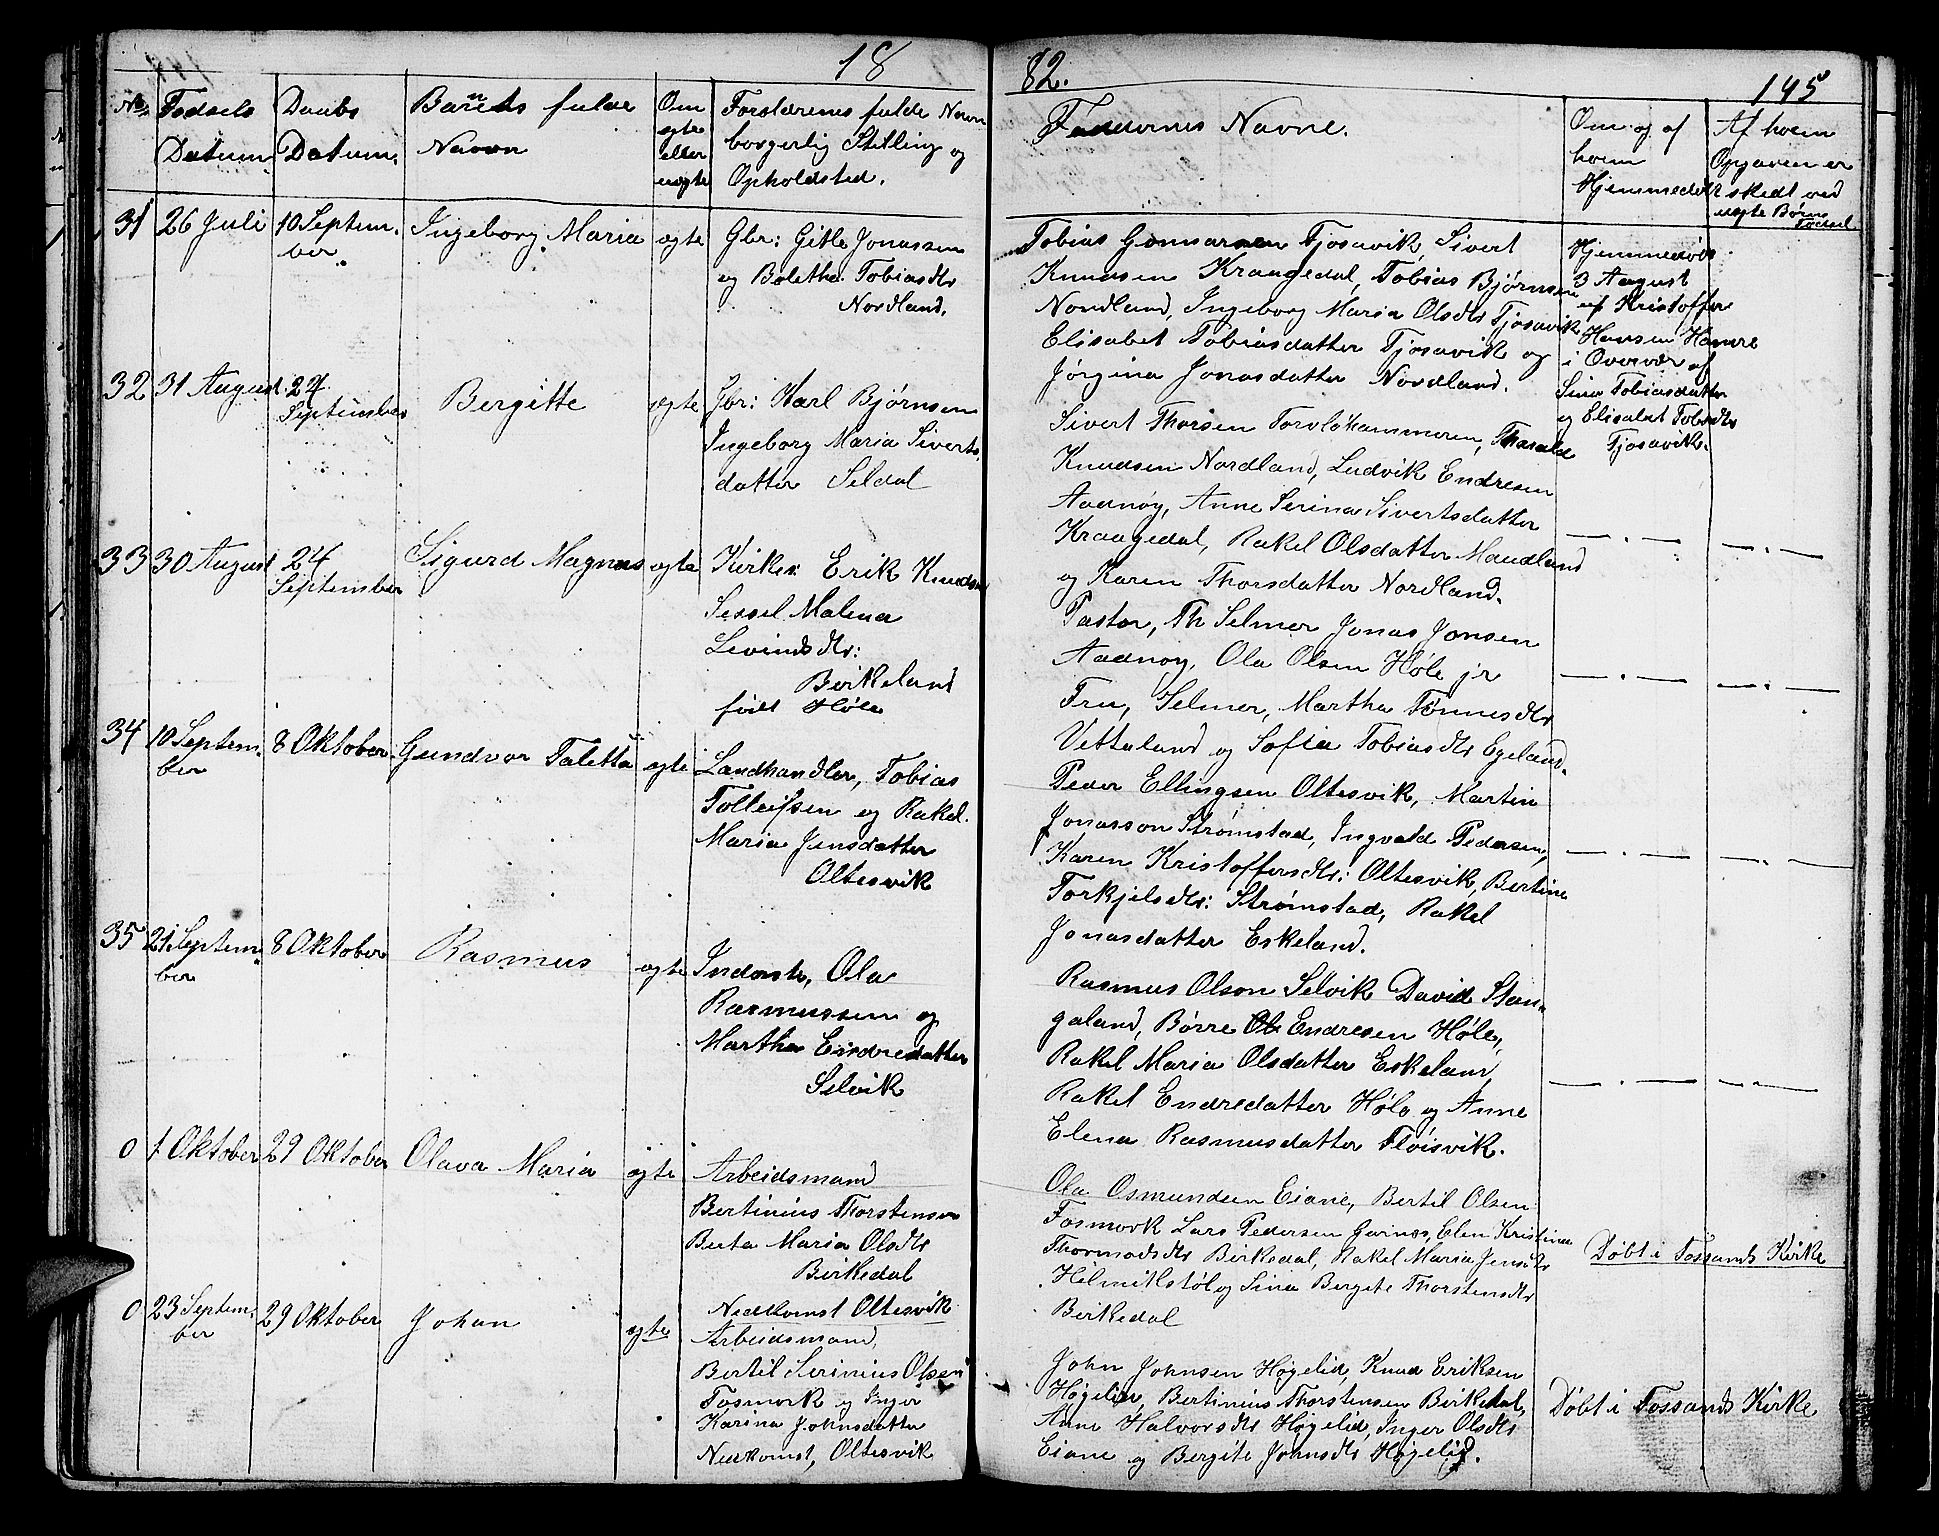 18
82.
145
No. Fødsels Datum
Daabs Datum.
Barnets fulde Navn
Om ægte eller uægte
Forældrenes fulde Navn borgerlig Stilling og Opholdsted.
Faddernes Navne.
Om og af hvem Hjemmedøbt
Af hvem Opgaven er skedt ved uægte Børns Fødsel
31
26 Juli
10 Septem-
ber.
Ingeborg Maria
ægte
Gbr: Gitle Jonassen
og Bolethe Tobiasdtr
Nordland.
Tobias Gunnarsen Tjosavik, Sivert
Knudsen Kraagedal, Tobias Bjørnsen
Nordland, Ingeborg Maria Olsdtr Tjosavik
Elisabet Tobiasdatter Tjosavik og
Jørgina Jonasdatter Nordland.
Hjemmedøbt
3 August
af Kristoffer
Hansen Hamre
i Overvær af
Sina Tobiasdatter
og Elisabet Tobsdtr
Tjosavik.
32
31 August
24
September
Bergitte
ægte
Gbr: Karl Bjørnsen
Ingeborg Maria Siverts
datter Seldal
Sivert Thorsen Torsløkammeren, Tharald
Knudsen Nordland, Ludvik Endresen
Aadnøy, Anne Serina Sivertsdatter
Kraagedal, Rakel Olsdatter Maudland
og Karen Thorsdatter Nordland.
— . —
— . —
33
30 August
24
September
Sigurd Magnus
ægte
Kirkes: Erik Knudsen
Sessel Malena
Levindsdtr:
Birkeland
født Høle
Pastor, Th Selmer Jonas Jonsen
Aadnøy, Ola Olsen Høle jr
Fru, Selmer, Martha Tønnesdtr
Vettaland og Sofia Tobiasdtr Egeland.
— . —
— . —
34
10 Septem-
ber
8 Oktober
Gundvor Taletta
ægte
Landhandler, Tobias
Tolleifsen og Rakel
Maria Jensdatter
Oltesvik
Peder Ellingsen Oltesvik, Martin
Jonasson Strømstad, Ingvald Pedersen,
Karen Kristoffersdtr: Oltesvik, Bertine
Torkjelsdtr: Strømstad, Rakel
Jonasdatter Eskeland.
— . —
— . —
35
21 Septem-
ber
8 Oktober
Rasmus
ægte
Inderste, Ola
Rasmussen og
Martha Endredatter
Selvik
Rasmus Olson Selvik David Stan-
galand, Børre Endresen Høle,
Rakel Maria Olsdatter Eskeland
Rakel Endredatter Høle og Anne
Elena Rasmusdatter Fløisvik.
— . —
— . —
0
1 Oktober
29 Oktober
Olava Maria
ægte
Arbeidsmand
Bertinius Thorstensen
Berta Maria Olsdtr
Birkedal
Nedkomst Oltesvik
Ola Osmundsen Eiane, Bertil Olsen
Fosmork Lars Pedersen Gavnes, Elen Kristine
Thormodsdtr Birkedal, Rakel Maria Jensdtr
Helmikstøl og Sina Bergite Thorstensdtr
Birkedal
Døbt i Fossands Kirke
0
23 Septem-
ber
29 Oktober
Johan
ægte
Arbeidsmand,
Bertil Serinius Olsen
Fosmork og Inger
Karina Johnsdatter
Nedkomst, Oltesvik
John Johnsen Høgelid, Knud Eriksen
Høgelid, Bertinius Thorstensen Birkedal,
Ane Halvorsdtr Høgelid, Inger Olsdtr
Eiane og Bergite Johnsdtr Høgelid.
Døbt i Fossands Kirke